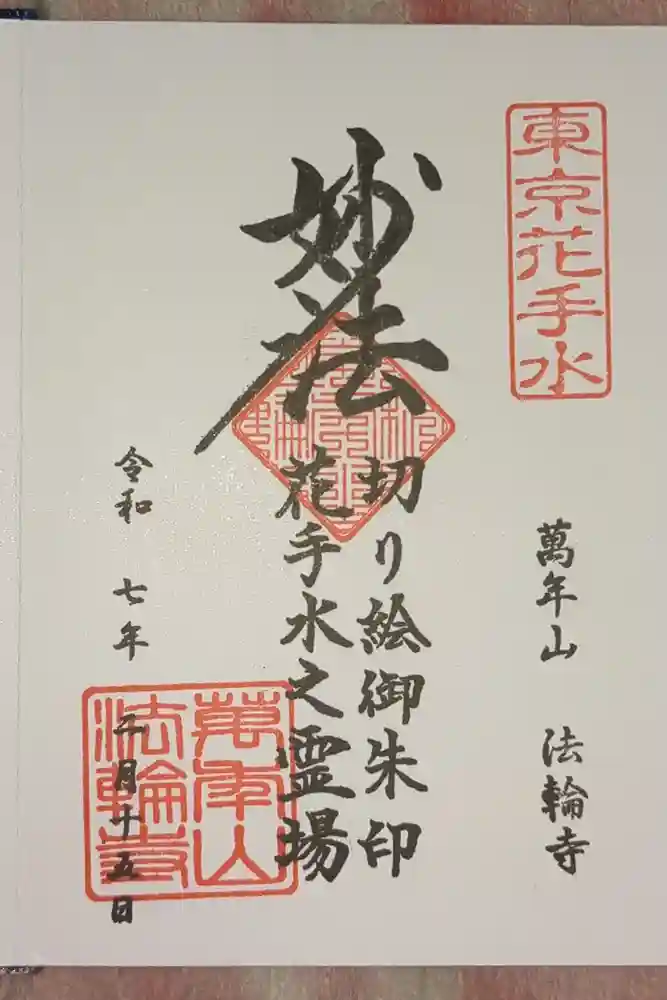 東京花手水
萬年山 法輪寺
妙法
切り絵御朱印
花手水之霊場
萬年山
法輪寺
令和 七年 二月廿五日